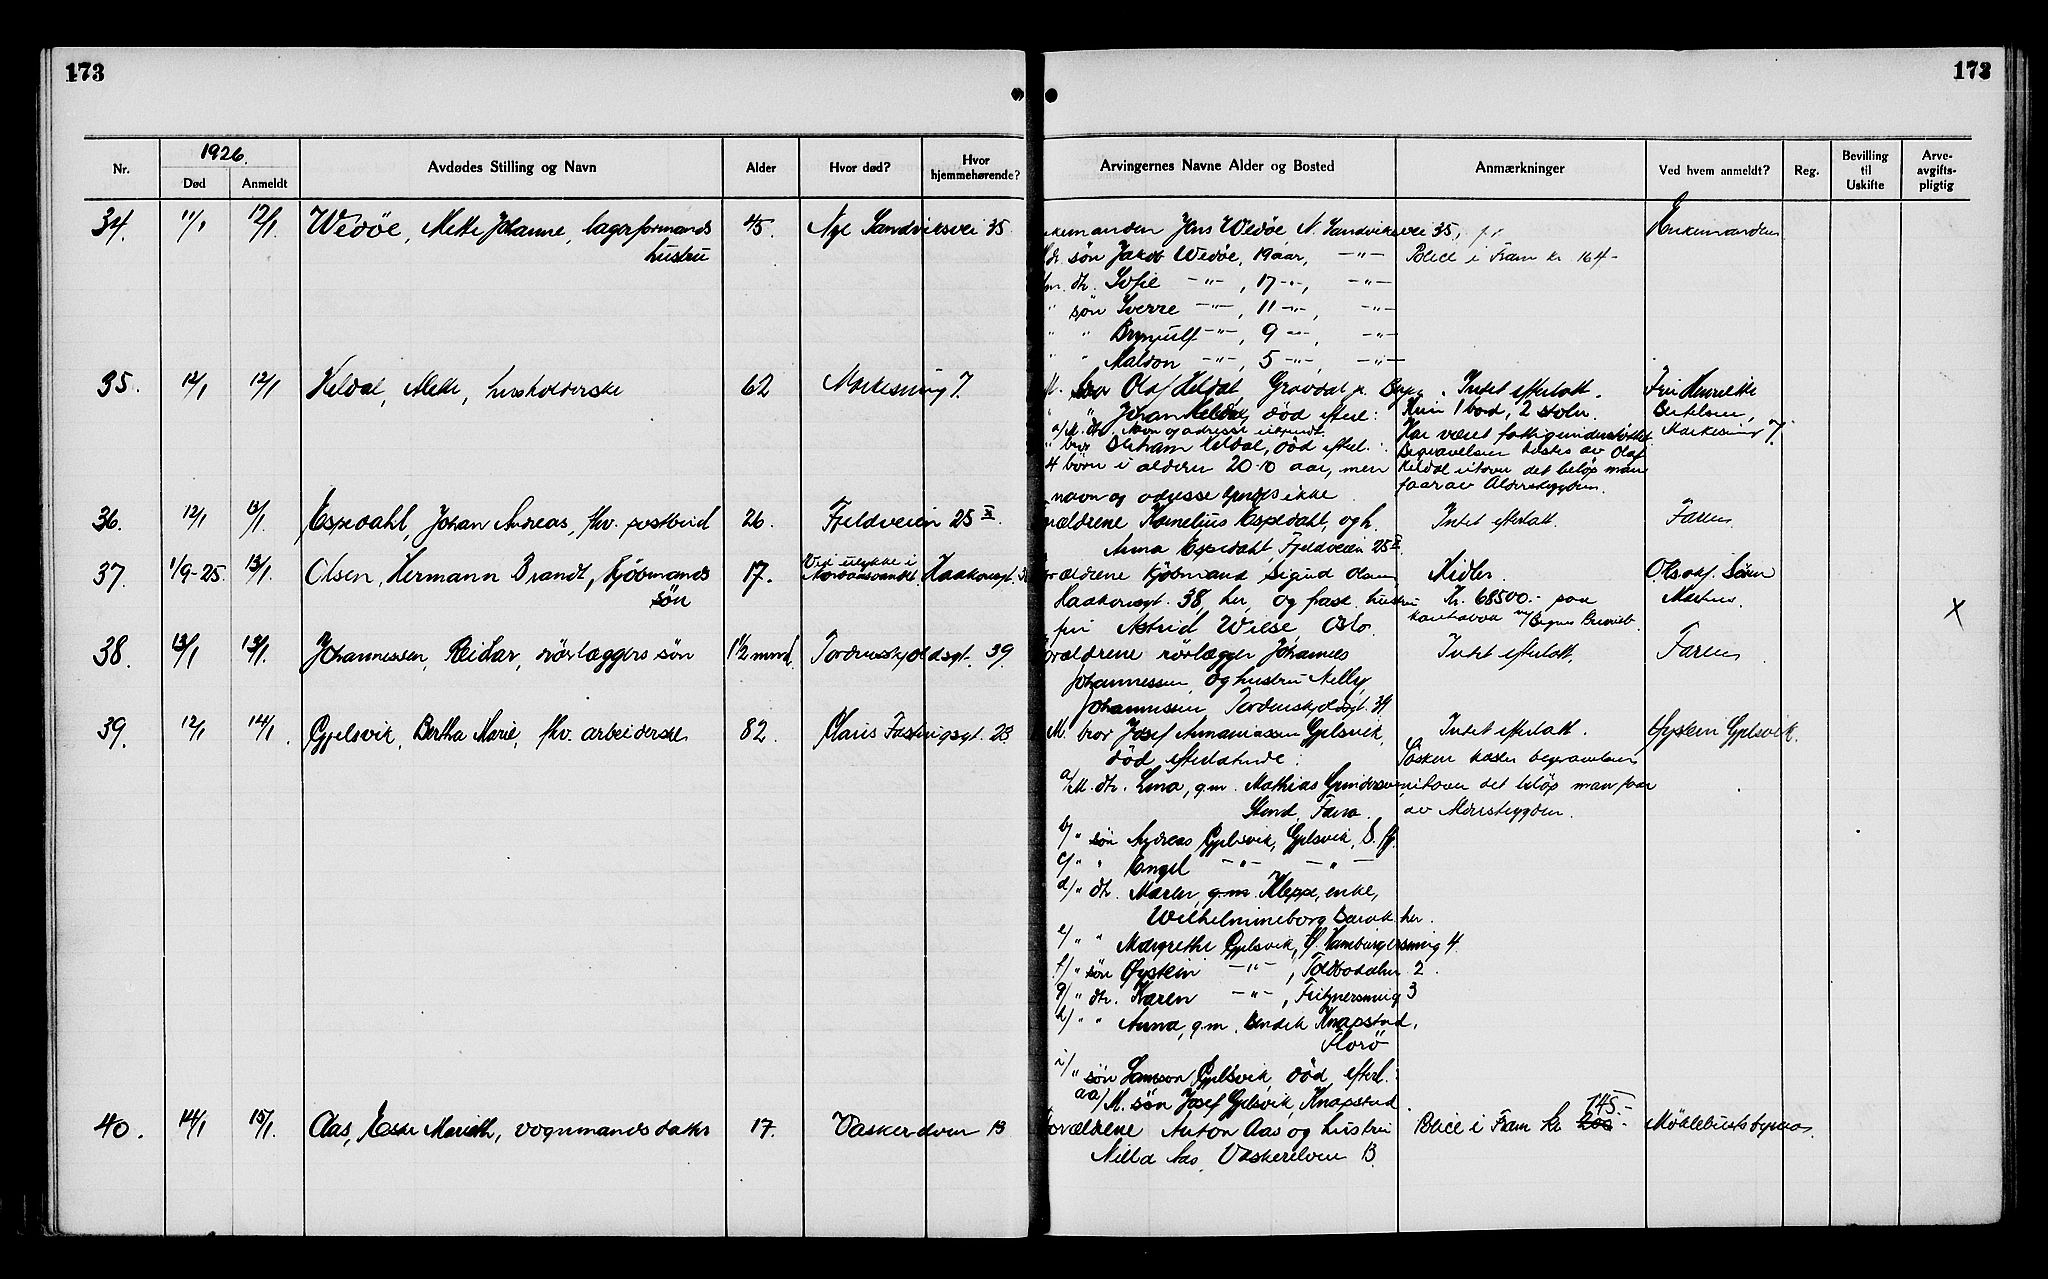 173
173
1926.
Nr.
Død
Anmeldt
Avdødes Stilling og Navn
Alder
Hvor død?
Hvor hjemmehørende?
Arvingernes Navne Alder og Bosted
Anmærkninger
Ved hvem anmeldt?
Reg.
Bevilling til Uskifte
Arve-avgifts-pligtig
34. 11/1 12/1 Wedøe, Mette Johanne, lagerformands 45. Nye Sandviksvei 35
hustru
Enkemanden Jens Wedøe N. Sandviksvei 35,
søn Jakob Wedøe, 19 aar, -"-
dtr. Sofie -"-, 17 -"-, -"-
" søn Sverre -"-, 11 -"-, -"-
" " Brynjulf -"-, 9 -"-, -"-
" " -"-, 5 -"-, -"-
Police i Fram kr. 164-
Enkemanden
35. 12/1 12/1 Heldal, Mette, husholderske 62 Markesmug 7.
M. bror Olaf Heldal, Gravdal pr. Bergen
" " Johan Heldal, død efterl:
a/ M. dtr. Navn og adresse ukjendt.
" bror Heldal, død efterl.:
4 børn i alderen 20-10 aar, men
navn og adresse kjendes ikke
Intet efterlatt.
Kun 1 bord, 2 stoler.
Har været fattigunderstøttet
Begravelsen kostes av Olaf
Heldal utover det beløp man
faar av Alderstrygden.
Fru Henriette
Bertelsen,
Markesmug 7
36. 12/1 13/1 Espedahl, Johan Andreas, fhv. postbud 26. Fjeldveien 25 II.
Forældrene Kornelius Espedahl, og h.
Anna Espedahl, Fjeldveien 25 II.
Intet efterlatt.
Faren
37. 1/9-25. 13/1 Olsen, Hermann Brandt, kjøbmands 17. Ved ulykke i Haakonsgt. 38
søn
Forældrene kjøbmand Sigurd Olsen
Haakonsgt. 38, her, og frask. hustru
fru Astrid Wilse, Oslo.
Midler.
Kr. 68500.- paa
O.r.sakf. Søren
X
38. 13/1 13/1. Johannessen, Reidar, rørlæggers søn 1½ mnd. Tordenskjoldsgt. 39
Forældrene rørlægger Johannes
Johannessen, og hustru Nelly
Johannessen Tordenskjoldsgt. 39
Intet efterlatt.
Faren
39. 12/1 14/1. Gjelsvik, Bertha Marie, fhv. arbeiderske 82. Claus Fastingsgt. 23.
M. bror Josef Ananiassen Gjelsvik,
død efterlatende:
a/ M. dtr. Lina, g.m. Mathias Gundersen,
Stend, Fana.
b/ " søn Andreas Gjelsvik, Gjelsvik, S. Fj.
c/ " " Engel -"- -"-
d/ " dtr. Maren, g.m. Kleppe, enke,
Wilhelmineborg Barak her.
e/ " " Margrethe Gjelsvik, Hamburgersmug 4
f/ " søn Øystein -"-, Toldbodalm. 2.
g/ " dtr. Karen -"-, Fritznersmug 3
h/ " " Anna, g.m. Bendik Knapstad,
Florø
i/ " søn Samson Gjelsvik, død, efterl.:
aa/ M. søn Josef Gjelsvik, Knapstad
Intet efterlatt.
koster begravelsen
utover det beløp man faar
av Alderstrygden.
Øystein Gjelsvik.
40. 14/1 15/1. Aas, Marieth, vognmands datter 17. Vaskerelven 13
Forældrene Anton Aas og hustru
Aas, Vaskerelven 13.
145.-
Police i Fram kr. 200 -
Møhlebustsbyraa.